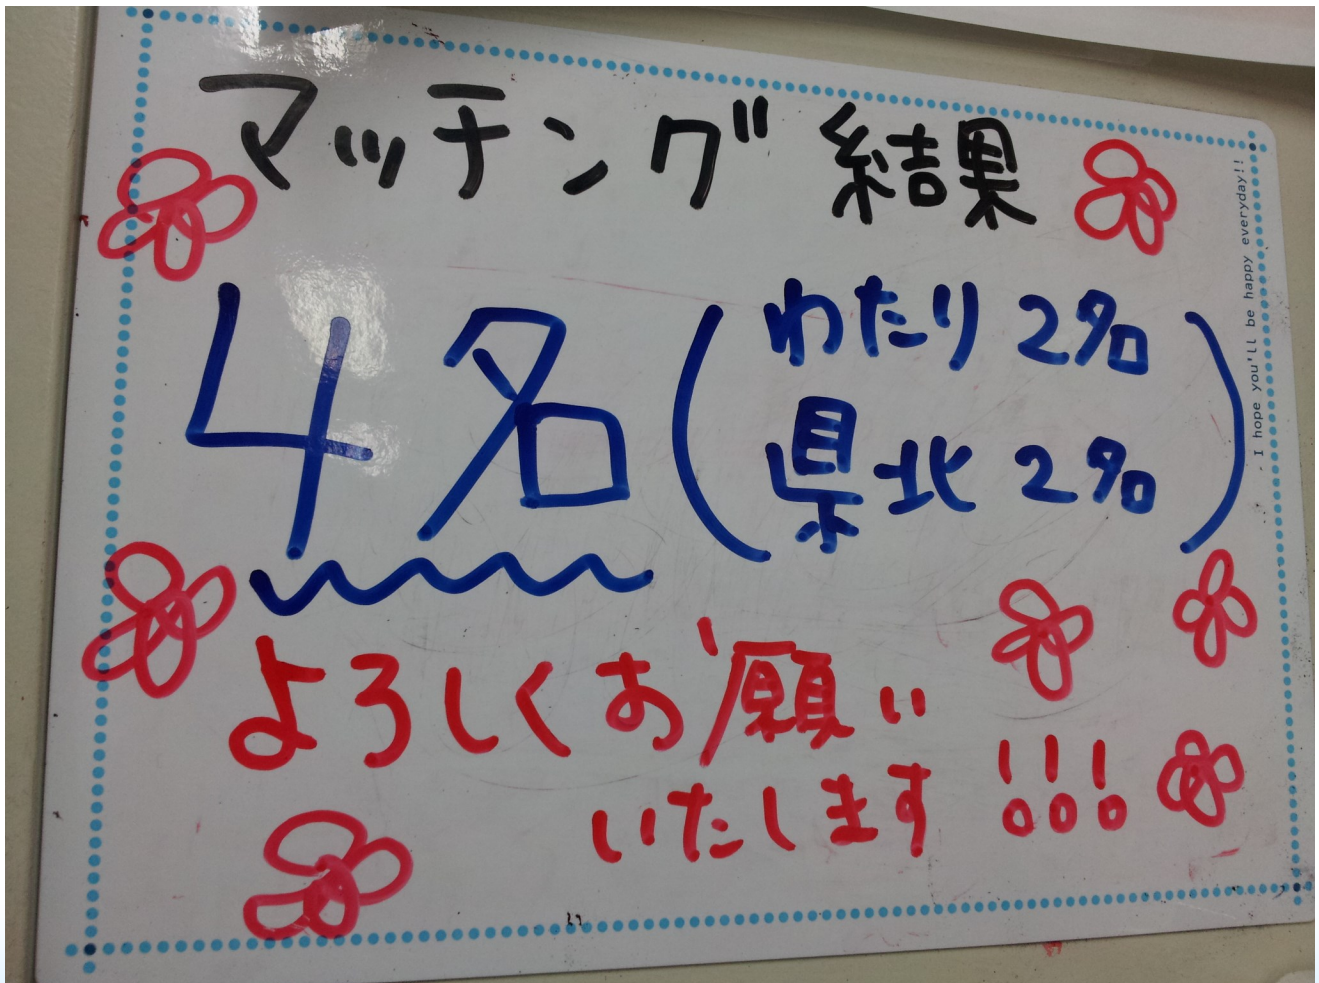 マッチング結果
4名(わたり2名
県北2名)
よろしくお願い
いたします!!!
- I hope you'll be happy everyday!!